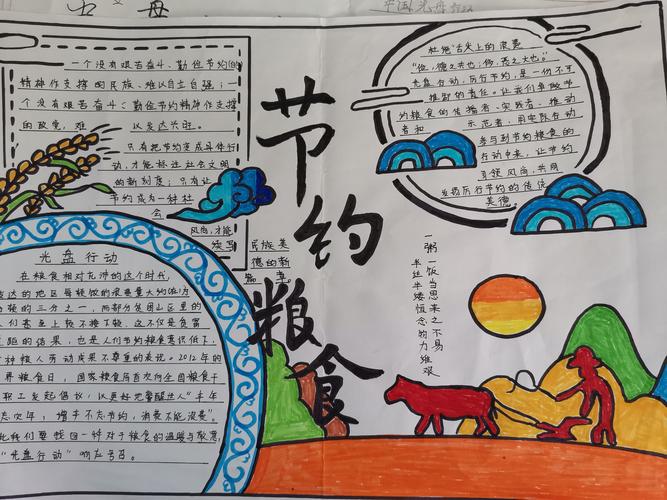 节约粮食
一个没有艰苦奋斗、勤俭节约的
精神作支撑的民族，难以自立自强；一
个没有艰苦奋斗、勤俭节约精神作支撑
的政党，难以兴旺。
只有把节约变成具体行
动，才能标注社会文明
的新刻度；只有让
节约成为一种社
会
风尚，才能
续写 民族美
德的新
篇章。
杜绝“舌尖上的浪费”
“俭，德之共也；侈，恶之大也。”
光盘行动，厉行节约，是一份不可
推卸的责任。让我们争做节
约粮食的传播者、实践者、推动
者和 示范者，用实际行动
参与到节约粮食的
行动中来，让节约
引领风尚，共同
发扬厉行节约的传统
美德。
光盘行动
在粮食相对充沛的这个时代，
达的地区每顿饭的浪费量大约饭
顿的三分之一，而部分贫困山区里的
们甚至上顿不接下顿，这不仅是贫富
距的结果，也是人们节约粮食意识低下，
种粮人劳动成果不尊重的表现。2012年的
界粮食日，国家粮食局首次向全国粮食干
职工发起倡议，以更好地警醒世人“丰年
志灾年，增产不忘节约，消费不能浪费”。
此我们要找回一种对于粮食的温暖与敬意，
“光盘行动”响应号召。
一粥一饭当思来之不易
半丝半缕恒念物力维艰